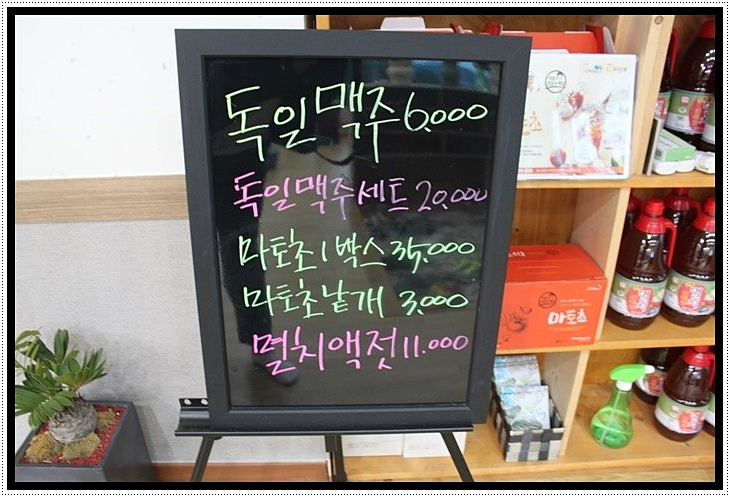 독일맥주 6,000
독일맥주세트 20,000
마토초 1박스 35,000
마토초낱개 3,000
멸치액젓 11.000
마토초